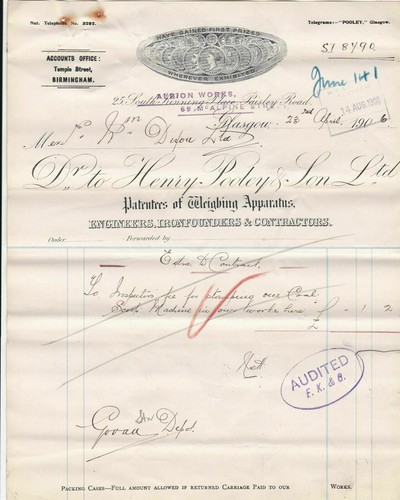 Nat. Telephone No. 3593.
Telegrams—"POOLEY," Glasgow.
HAVE GAINED FIRST PRIZES
WHEREVER EXHIBITED
ACCOUNTS OFFICE:
Temple Street,
BIRMINGHAM.
SI 8490
June 141
ALBION WORKS,
25 South Kinning Place Paisley Road,
69 McALPINE STREET
14 AUG 1906
Glasgow, 23rd April 1906
Messrs Wm Dixon Ltd
Dr. to Henry Pooley & Son Ltd
Patentees of Weighing Apparatus.
ENGINEERS, IRONFOUNDERS & CONTRACTORS.
Order Forwarded by
Extra D Contract.
To Inspectors fee for stamping one Coal
Scoop Machine in your works here £ - 1 2
£
Nett
AUDITED
F. K. & G.
Govan Depot.
PACKING CASES—FULL AMOUNT ALLOWED IF RETURNED CARRIAGE PAID TO OUR WORKS.